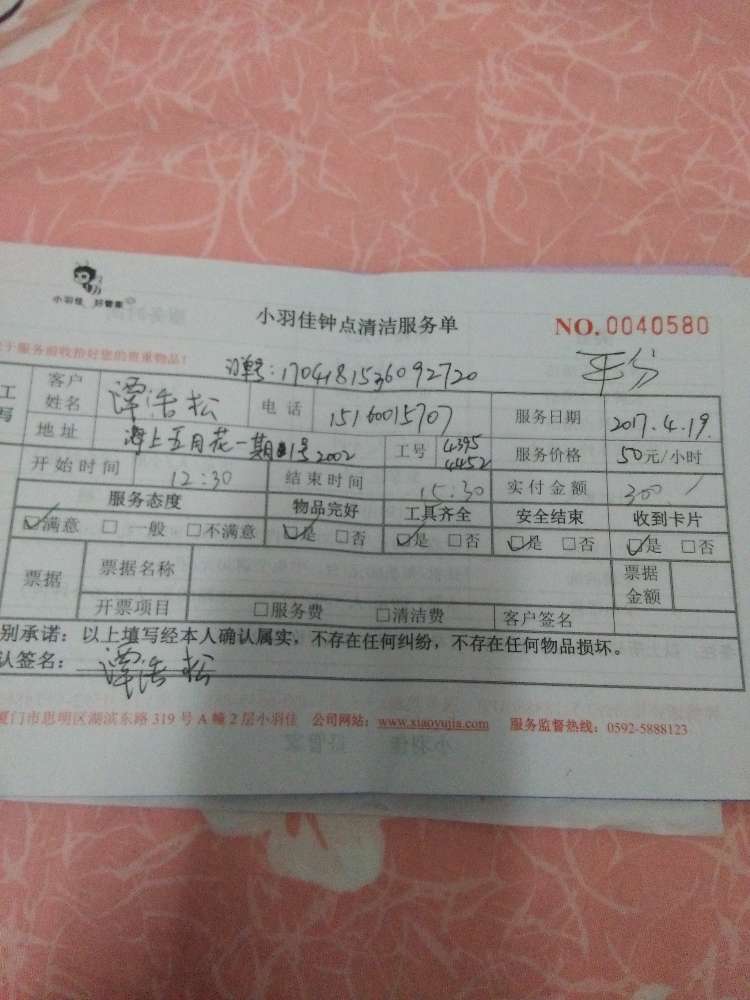 小羽佳 好管家
小羽佳钟点清洁服务单
NO.0040580
于服务前收拾好您的贵重物品！
订单号：1704181536092720
平分
工
写
客户姓名 谭浩松 电话 15160015707 服务日期 2017.4.19.
地址 海上五月花一期1号2002 工号 4395 4452 服务价格 50元/小时
开始时间 12:30 结束时间 15:30 实付金额 300
服务态度 物品完好 工具齐全 安全结束 收到卡片
☑满意 □一般 □不满意 ☑是 □否 ☑是 □否 ☑是 □否 ☑是 □否
票据 票据名称 票据金额
开票项目 □服务费 □清洁费 客户签名
别承诺：以上填写经本人确认属实，不存在任何纠纷，不存在任何物品损坏。
认签名：谭浩松
厦门市思明区湖滨东路319号A幢2层小羽佳 公司网站：www.xiaoyujia.com 服务监督热线：0592-5888123